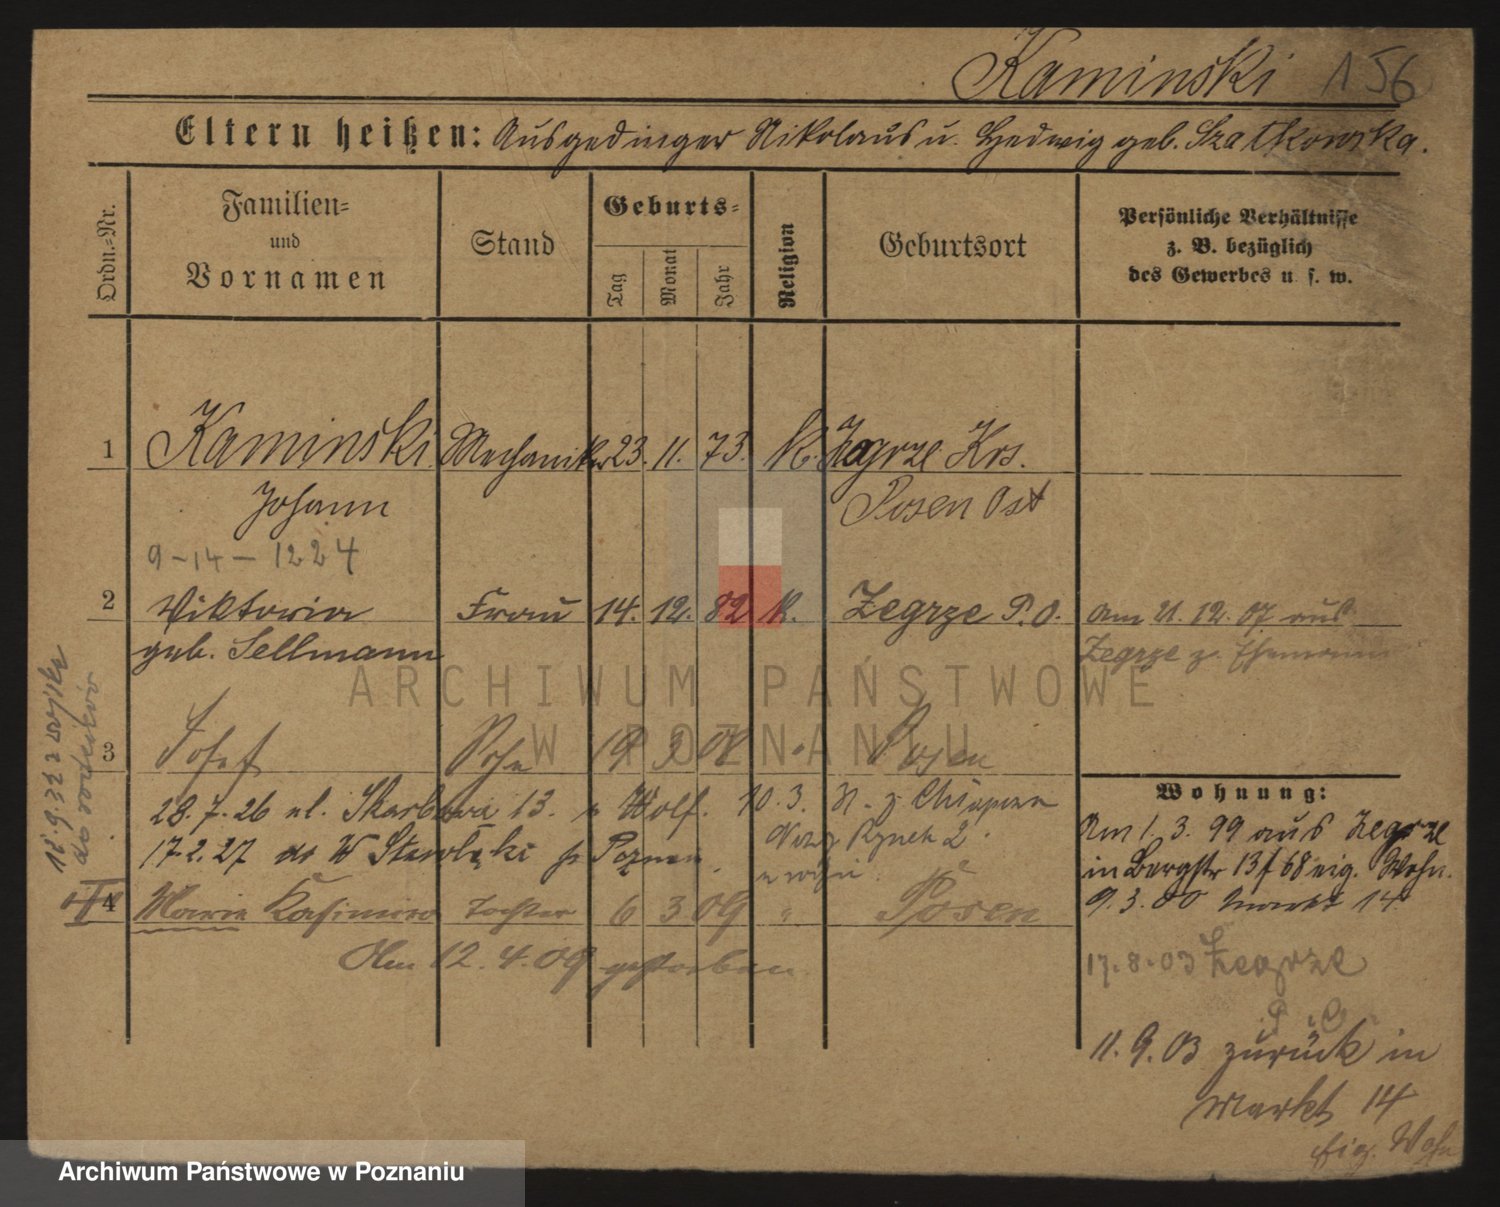 Kaminski 156
Eltern heißen: Ausgedinger Nikolaus u. Hedwig geb. Szatkowska.
Ordn.=Nr.
Familien=
und
Vornamen
Stand
Geburts=
Tag
Monat
Jahr
Religion
Geburtsort
Persönliche Verhältnisse
z. B. bezüglich
des Gewerbes u. s. w.
1 Kaminski Mechaniker 23. 11. 73. K. Zegrze Krs.
Johann Posen Ost
9-14-1224
2 Viktoria Frau 14. 12. 82 K. Zegrze P.O. Am 21.12.07 aus
geb. Sellmann Zegrze z. Ehemann
ARCHIWUM PAŃSTWOWE
W POZNANIU
3 Josef Sohn 19 3 Posen
28.7.26 ul. Skarbowa 13. Wolf. 10.3.
17.2.27 do W Poznań
Rynek 2
4 Maria Kasimira Tochter 6 3 09 " Posen
Am 12.4.09 gestorben
Wohnung:
Am 1.3.99 aus Zegrze
in Bergstr 13 f 68 eig. Wohn.
9.3.00 Markt 14
17.8.03 Zegrze
P. O.
11.9.03 zurück in
Markt 14
Eig. Wohn
12.9.33 z wojska
Archiwum Państwowe w Poznaniu